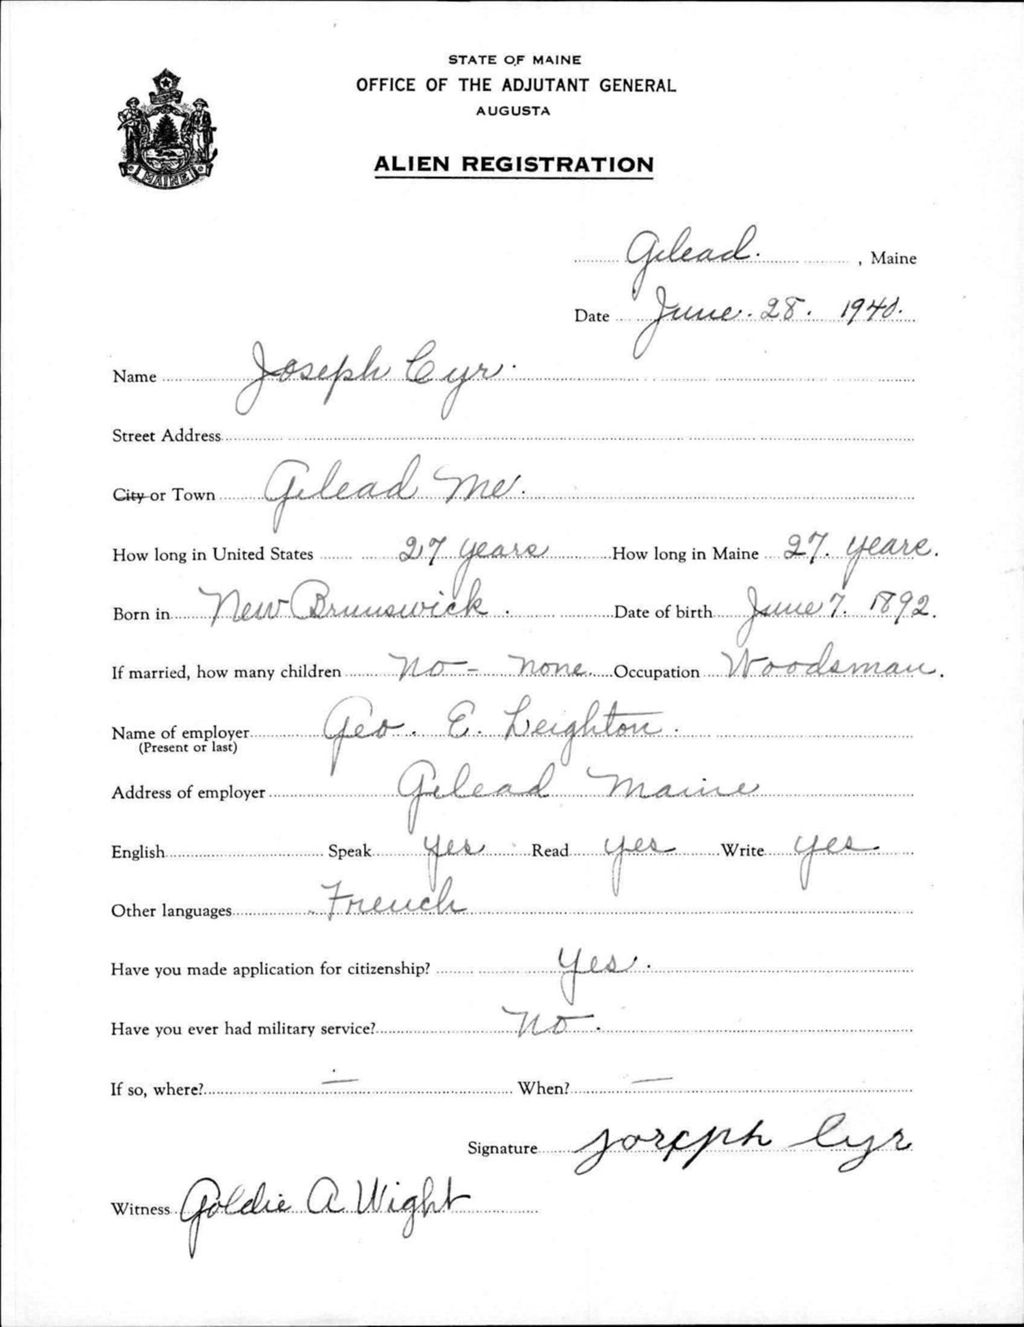 STATE OF MAINE
OFFICE OF THE ADJUTANT GENERAL
AUGUSTA
ALIEN REGISTRATION
MAINE
Gilead. , Maine
Date June. 28. 1940.
Name Joseph Cyr.
Street Address
City or Town Gilead Me.
How long in United States 27 years How long in Maine 27. years.
Born in New Brunswick. Date of birth June 7. 1892.
If married, how many children No - none. Occupation Woodsman.
Name of employer Geo. E. Leighton.
(Present or last)
Address of employer Gilead Maine
English Speak yes Read yes Write yes
Other languages French
Have you made application for citizenship? Yes.
Have you ever had military service? No.
If so, where? — When? —
Signature Joseph Cyr
Witness Goldie A. Wight